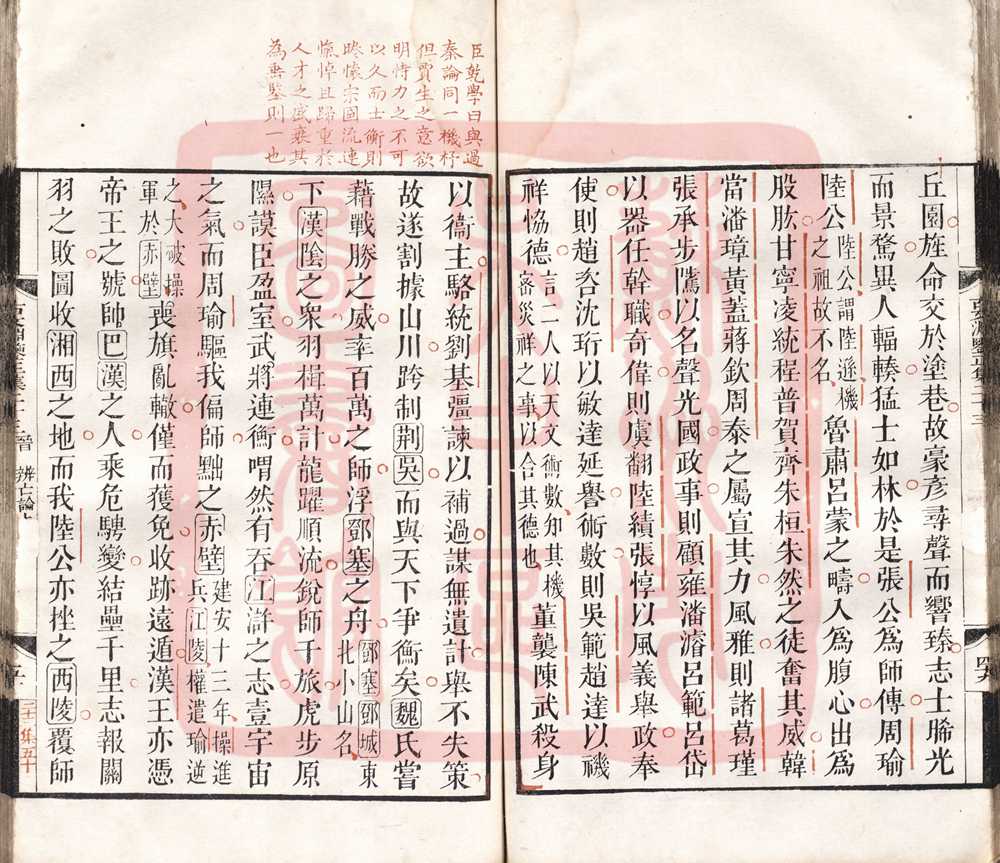 丘園旌命交於塗巷故豪彥尋聲而響臻志士睎光
而景騖異人輻輳猛士如林於是張公為師傅周瑜
陸公陸公謂陸遜機之祖故不名魯肅呂蒙之疇入為腹心出為
股肱甘寧凌統程普賀齊朱桓朱然之徒奮其威韓
當潘璋黃蓋蔣欽周泰之屬宣其力風雅則諸葛瑾
張承步隲以名聲光國政事則顧雍潘濬呂範呂岱
以器任幹職奇偉則虞翻陸績張惇以風義舉政奉
使則趙咨沈珩以敏達延譽術數則吳範趙達以禨
祥恊德言二人以天文術數知其機密災祥之事以合其德也董襲陳武殺身
臣乾學曰與過
秦論同一機杼
但賈生之意欲
明恃力之不可
以久而士衡則
睠懷宗國流連
惋悼且歸重於
人才之盛衰其
為垂鑒則一也
以衞主駱統劉基彊諫以補過謀無遺計舉不失策
故遂割據山川跨制荆吳而與天下爭衡矣魏氏嘗
藉戰勝之威率百萬之師浮鄧塞之舟鄧塞鄧城東北小山名
下漢陰之衆羽楫萬計龍躍順流銳師千旅虎步原
隰謨臣盈室武將連衡喟然有吞江滸之志壹宇宙
之氣而周瑜驅我偏師黜之赤壁建安十三年操進兵江陵權遣瑜逆
之大破操軍於赤壁喪旗亂轍僅而獲免收跡遠遁漢王亦憑
帝王之號師巴漢之人乘危騁變結壘千里志報關
羽之敗圖收湘西之地而我陸公亦挫之西陵覆師
辨亡論上
二十二集五十